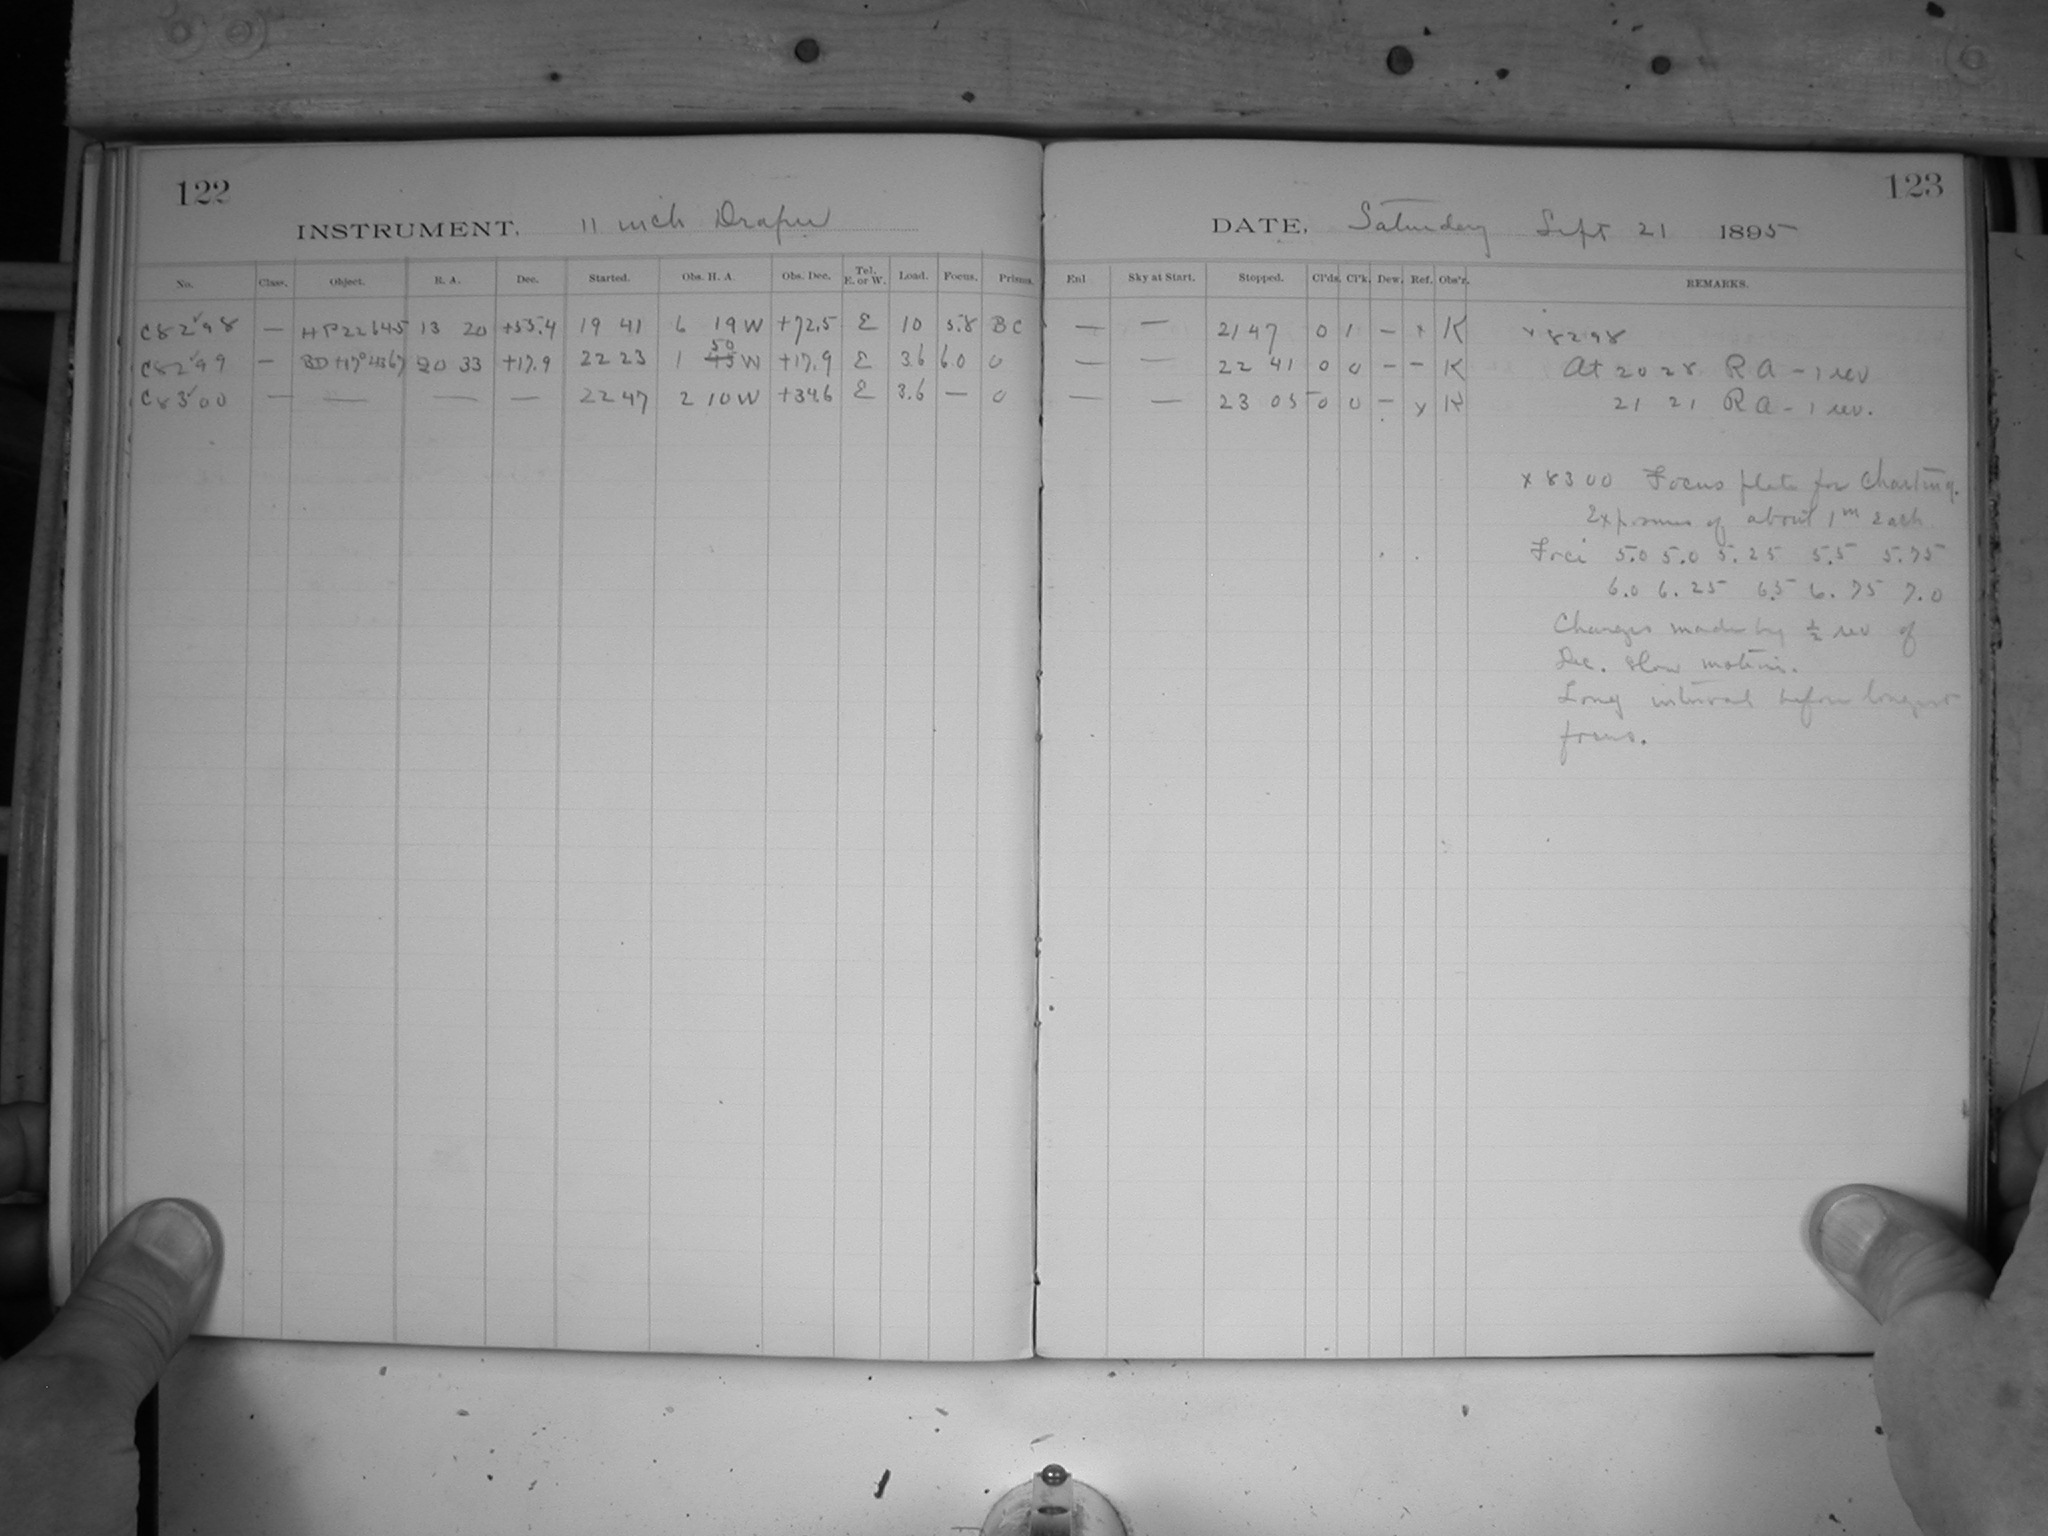 122
INSTRUMENT. 11 inch Draper
No. Class. Object. R. A. Dec. Started. Obs. H. A. Obs. Dec. Tel. E. or W. Load. Focus. Prisms.
C8298 — HP22645 13 20 +55.4 19 41 6 19W +72.5 E 10 5.8 BC
C8299 — BD+17°4367 20 33 +17.9 22 23 1 45 50 W +17.9 E 3.6 6.0 0
C8300 — — — — 22 47 2 10W +34.6 E 3.6 — 0
123
DATE, Saturday Sept 21 1895
Enl Sky at Start. Stopped. Cl'ds. Cl'k. Dew. Ref. Obs'r. REMARKS.
— — 21 47 0 1 — x K x 8298
— — 22 41 0 0 — — K At 20 28 R A - 1 rev
— — 23 05 0 0 — x K 21 21 R A - 1 rev.
x 8300 Focus plate for Charting.
Exposures of about 1m each
Foci 5.0 5.0 5.25 5.5 5.75
6.0 6.25 6.5 6.75 7.0
Changes made by ½ rev of
Dec. slow motion.
Long interval before longest
focus.